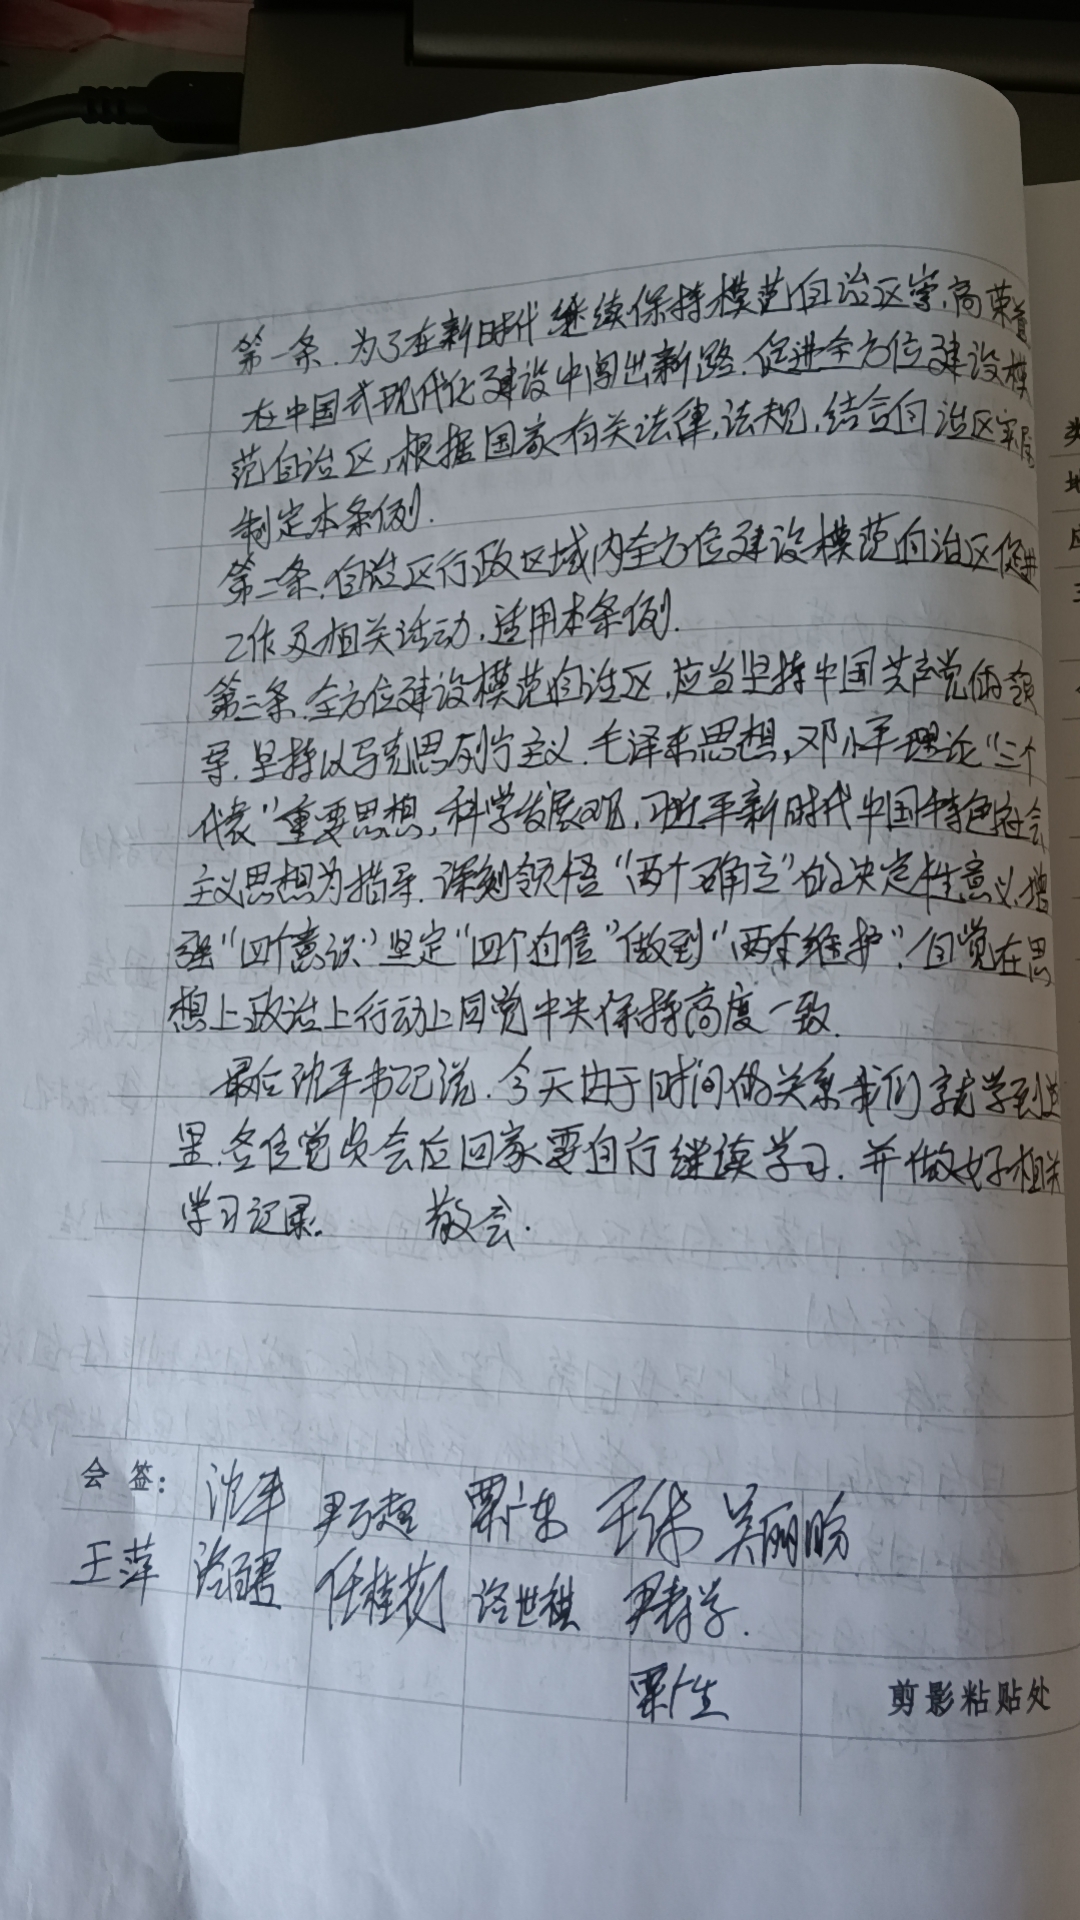 第一条.为了在新时代继续保持模范自治区崇高荣誉
在中国式现代化建设中闯出新路.促进全方位建设模
范自治区,根据国家有关法律,法规,结合自治区实际
制定本条例.
第二条.自治区行政区域内全方位建设模范自治区促进
工作及相关活动,适用本条例.
第三条.全方位建设模范自治区,应当坚持中国共产党的领
导.坚持以马克思列宁主义.毛泽东思想,邓小平理论"三个
代表"重要思想,科学发展观,习近平新时代中国特色社会
主义思想为指导.深刻领悟"两个确立"的决定性意义,增
强"四个意识"坚定"四个自信"做到"两个维护".自觉在思
想上政治上行动上同党中央保持高度一致.
最后沈平书记说.今天由于时间的关系我们就学到这
里.各位党员会后回家要自行继续学习.并做好相关
学习记录. 散会.
会 签: 沈平 尹乃超 覃广东 王伟 吴丽盼
王萍 任桂菊 尹寿学.
覃广生 剪影粘贴处
类